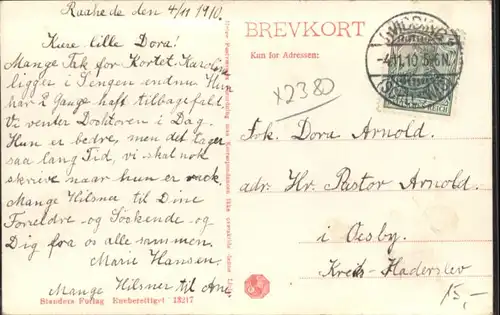 Raahede den 4/11 1910.
Kære lille Dora!
Mange Tak for Kortet Karoline
ligger i Sengen endnu Hun
har 2 Gange haft tilbagefald,
Vi venter Doktoren i Dag.
Hun er bedre, men det tager
saa lang Tid, vi skal nok
skrive naar hun er rask.
Mange Hilsner til Dine
Forældre og Søskende og
Dig fra os alle sammen.
Marie Hansen.
Mange Hilsner til Ane
Stenders Forlag Eneberettiget 13217
BREVKORT
Kun for Adressen:
x2380
4.11.10 5-6N
Frk. Dora Arnold.
adr. Hr. Pastor Arnold
i Oesby.
Kreis Haderslev
15,-